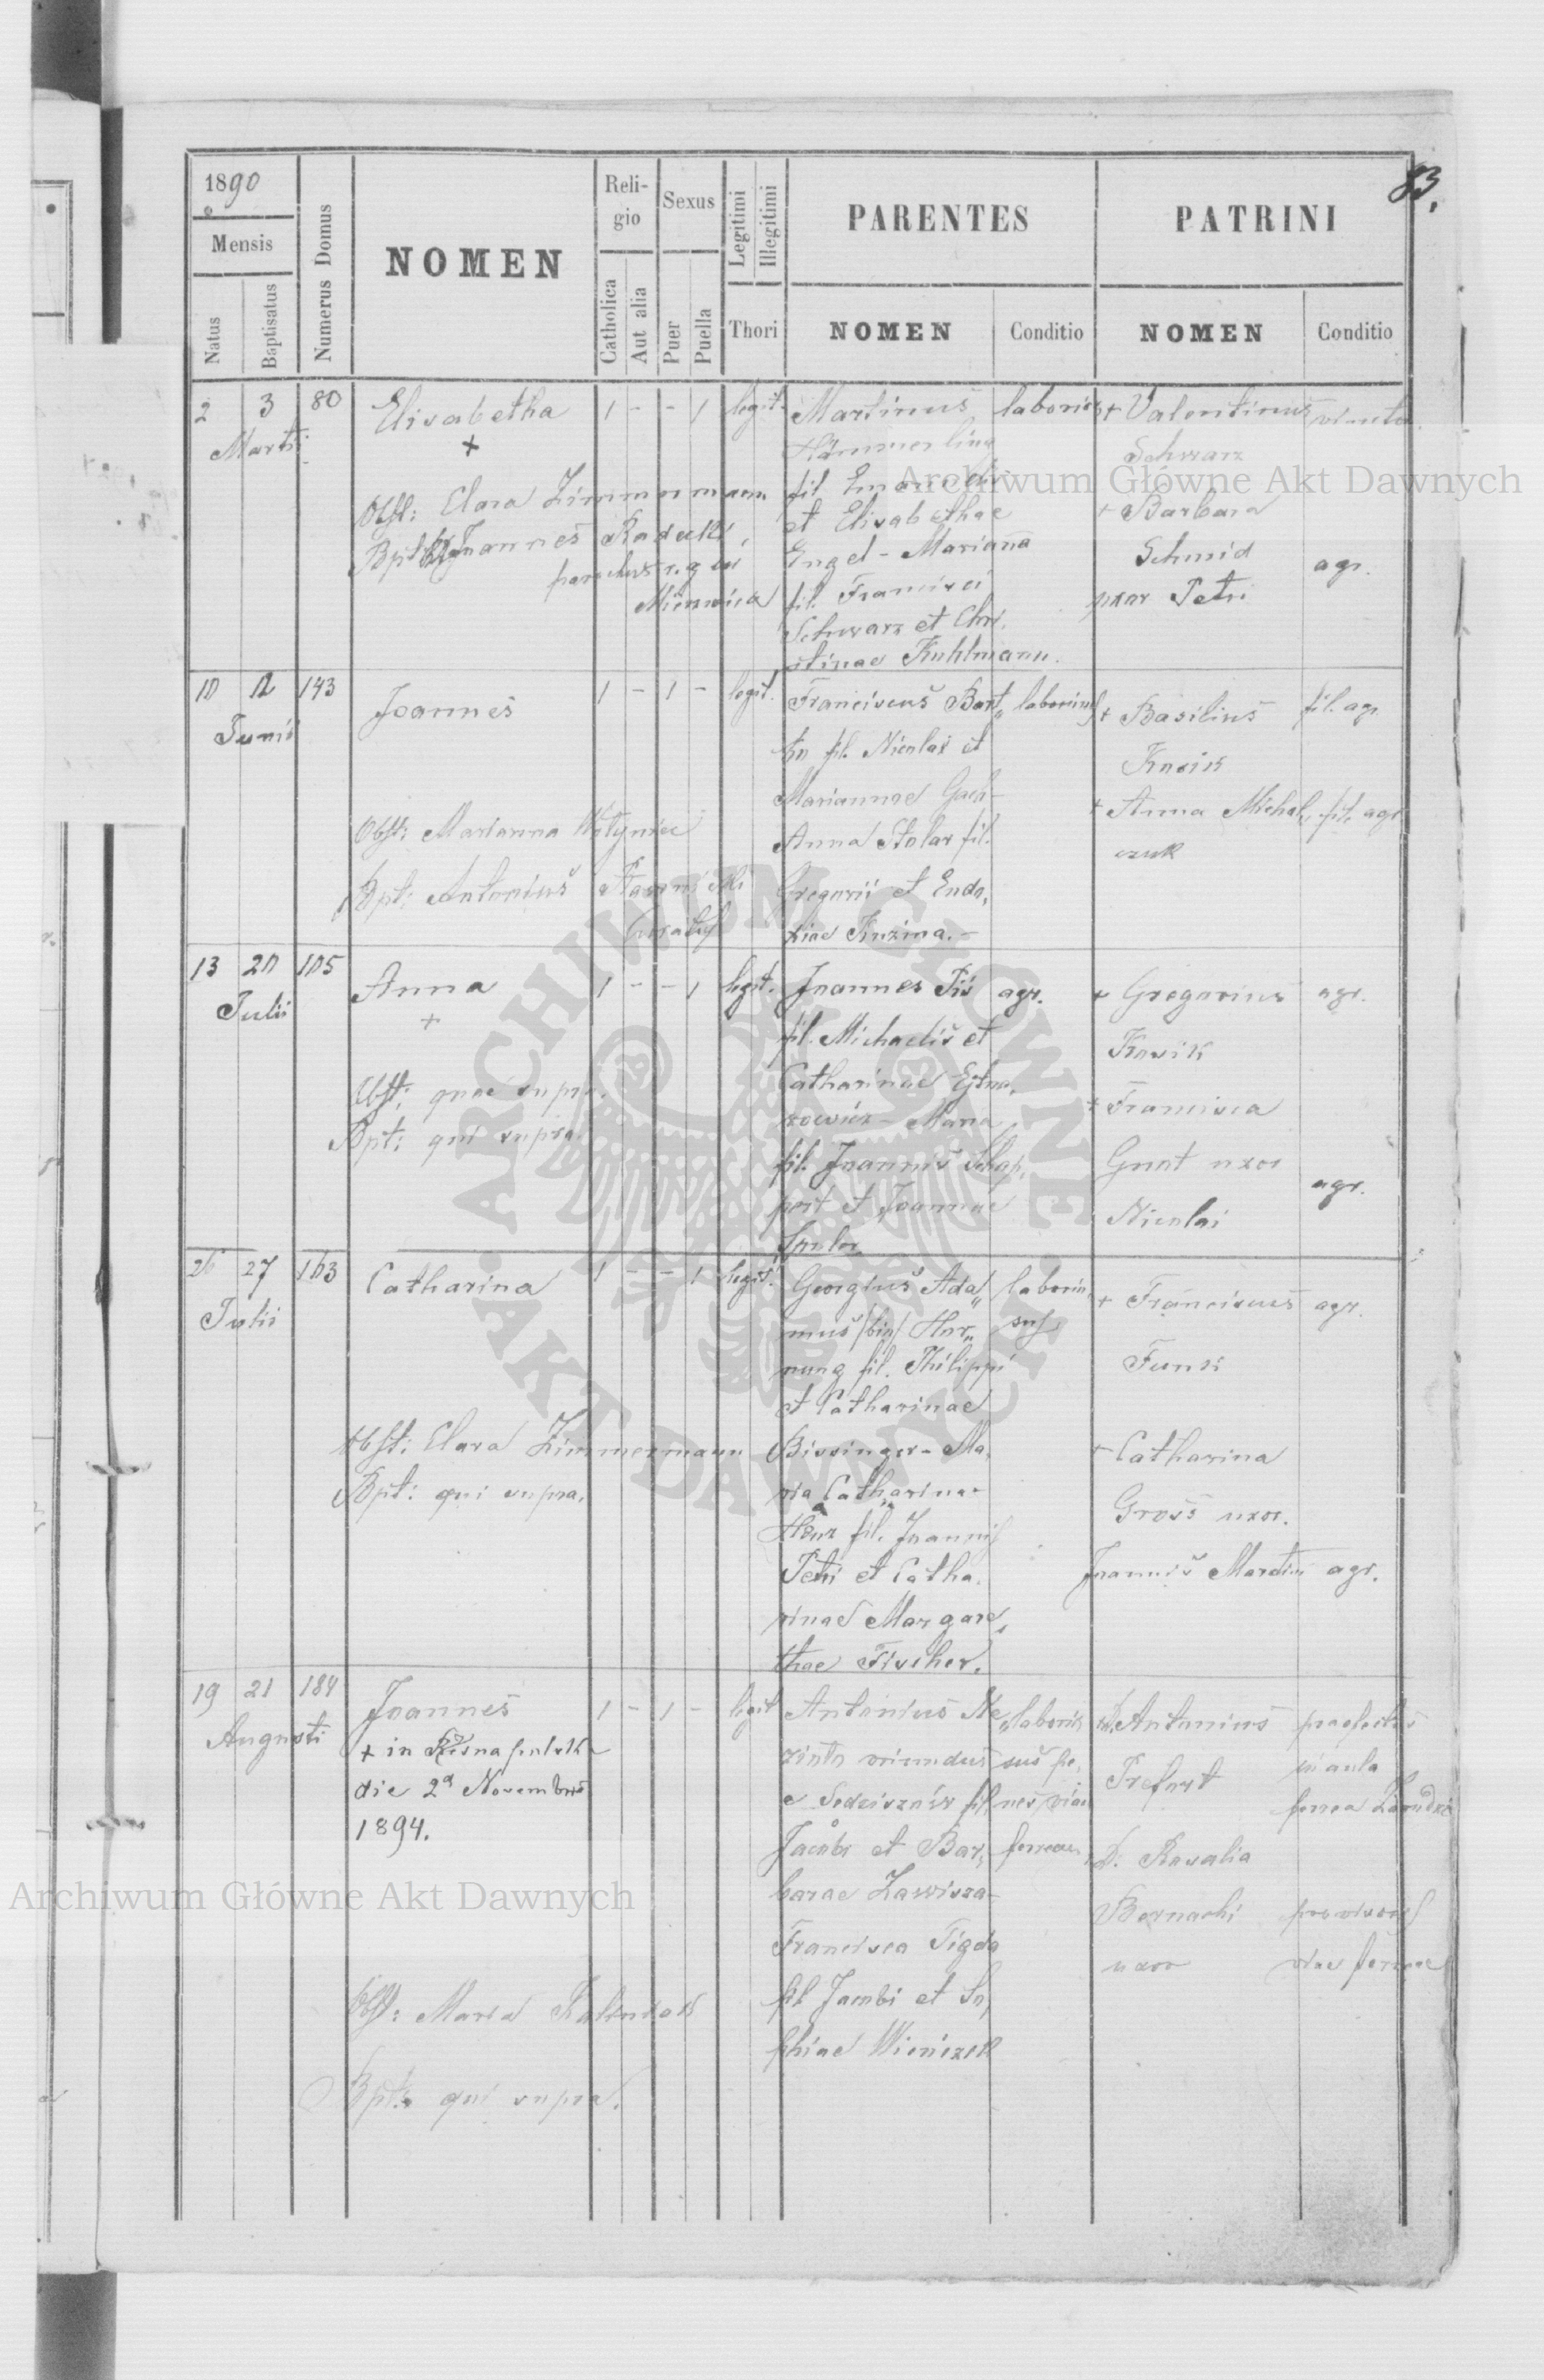 83.
1890
Mensis
Natus
Baptisatus
Numerus Domus
NOMEN
Religio
Catholica
Aut alia
Sexus
Puer
Puella
Legitimi
Illegitimi
Thori
PARENTES
NOMEN
Conditio
PATRINI
NOMEN
Conditio
2 3 80
Martii
Elisabetha
+
Obst: Clara Zimmermann
Bpt: Joannes Radecki,
parochus r. g. in
1 - - 1 legit.
Martinus
Hämmerling
fil. Emanuelis
et Elisabethae
Engel - Marianna
fil. Francisci
Schwarz et Chri,
stinae Kuhlmann.
+ Valentinus
Schwarz
+ Barbara
Schmid
uxor Petri
agr.
10 12 143
Junii
Joannes
Obst: Marianna
Bpt: Antonius
1 - 1 - legit.
Franciscus Bart,,
ko fil. Nicolai et
Mariannae Gach -
Anna Stolar fil.
Gregorii et Eudo,
xiae Kuzma. -
+ Basilius
Kosik
+ Anna Michal,
czuk
fil. agr.
fil. agr.
13 20 105
Julii
Anna
+
Obst: quae supra.
Bpt: qui supra.
1 - - 1 legit.
Joannes Piś
fil. Michaelis et
Catharinae
Maria
fil. Joannis Schap,
pert et Joannae
agr.
+ Gregorius
Kosik
+ Francisca
Gnot uxor
Nicolai
agr.
agr.
26 27 163
Julii
Catharina
Obst: Clara Zimmermann
Bpt: qui supra.
1 - - 1 legit.
Georgius Ada,,
mus /bin/ Hor,,
nung fil. Philippi
et Catharinae
Bissinger - Ma,
ria Catharina
fil. Joannis
Petri et Catha,
rinae Margare,
thae Fischer.
+ Franciscus
Funk
+ Catharina
Gross uxor.
Joannis Martin
agr.
agr.
19 21 184
Augusti
Joannes
+ in
die 2a Novembris
1894.
Obst: Maria
Bpt: qui supra.
1 - 1 - legit
Antonius
oriundus
e fil
Jacobi et Bar,
barae Zawisza -
Francisca Tigda
fil Jacobi et So,
phiae
D. Antonius
D. Rosalia
uxor
praefectus
viae ferreae
Archiwum Główne Akt Dawnych
Archiwum Główne Akt Dawnych
ARCHIWUM GŁÓWNE AKT DAWNYCH